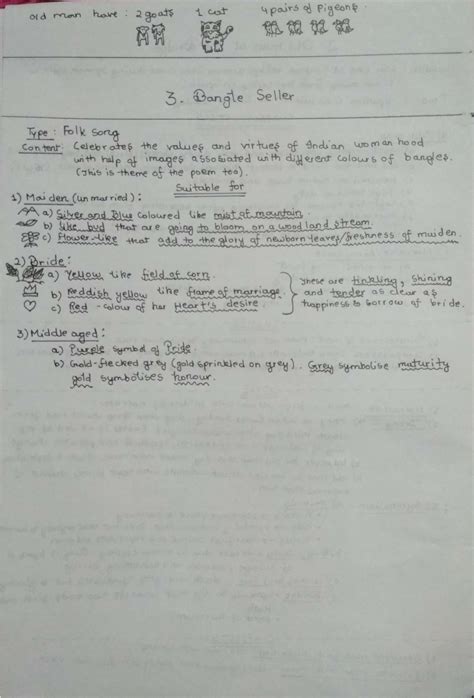 old man have : 2 goats 1 cat 4 pairs of pigeons.
3. Bangle Seller
Type : Folk song
Content : Celebrates the values and virtues of Indian woman hood
with help of images assosiated with different colours of bangles.
(This is theme of the poem too).
Suitable for
1) Maiden (unmarried) :
a) Silver and blue coloured like mist of mountain
b) like bud that are going to bloom on a woodland stream.
c) Flower-like that add to the glory of newborn leaves/freshness of maiden.
2) Bride :
a) Yellow like field of corn.
b) Reddish yellow like flame of marriage
c) Red - colour of her Heart's desire.
These are tinkling, shining
and tender as clear as
happiness to sorrow of bride.
3) Middle aged :
a) Purple symbol of Pride
b) Gold-flecked grey (gold sprinkled on grey). Grey symbolise maturity
gold symbolises honour.